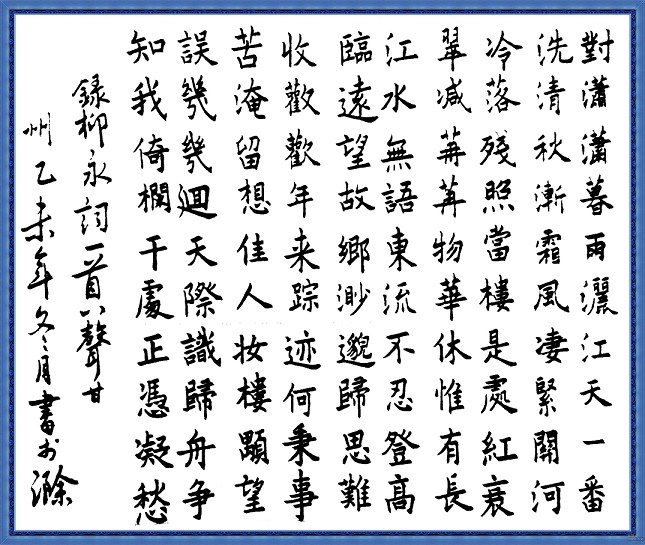 對瀟瀟暮雨灑江天一番
洗清秋漸霜風凄緊關河
冷落殘照當樓是處紅衰
翠减苒苒物華休惟有長
江水無語東流不忍登高
臨遠望故鄉渺邈歸思難
收歡歡年来踪迹何秉事
苦淹留想佳人妆樓顒望
誤幾幾迴天際識歸舟争
知我倚欄干處正憑凝愁
録柳永詞一首八聲甘
州乙未年冬月書於滁